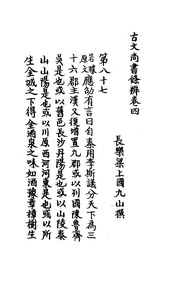 古文尚書條辨卷四
長樂梁上國九山撰
第八十七
若璩原文應劭有言曰自秦用李斯議分天下為三
十六郡至漢又復增置九郡或以列國陳魯齊
吳是也或以舊邑長沙丹陽是也或以山陵泰
山山陽是也或以川原西河河東是也或以所
生金城之下得金酒泉之味如酒豫章樟樹生